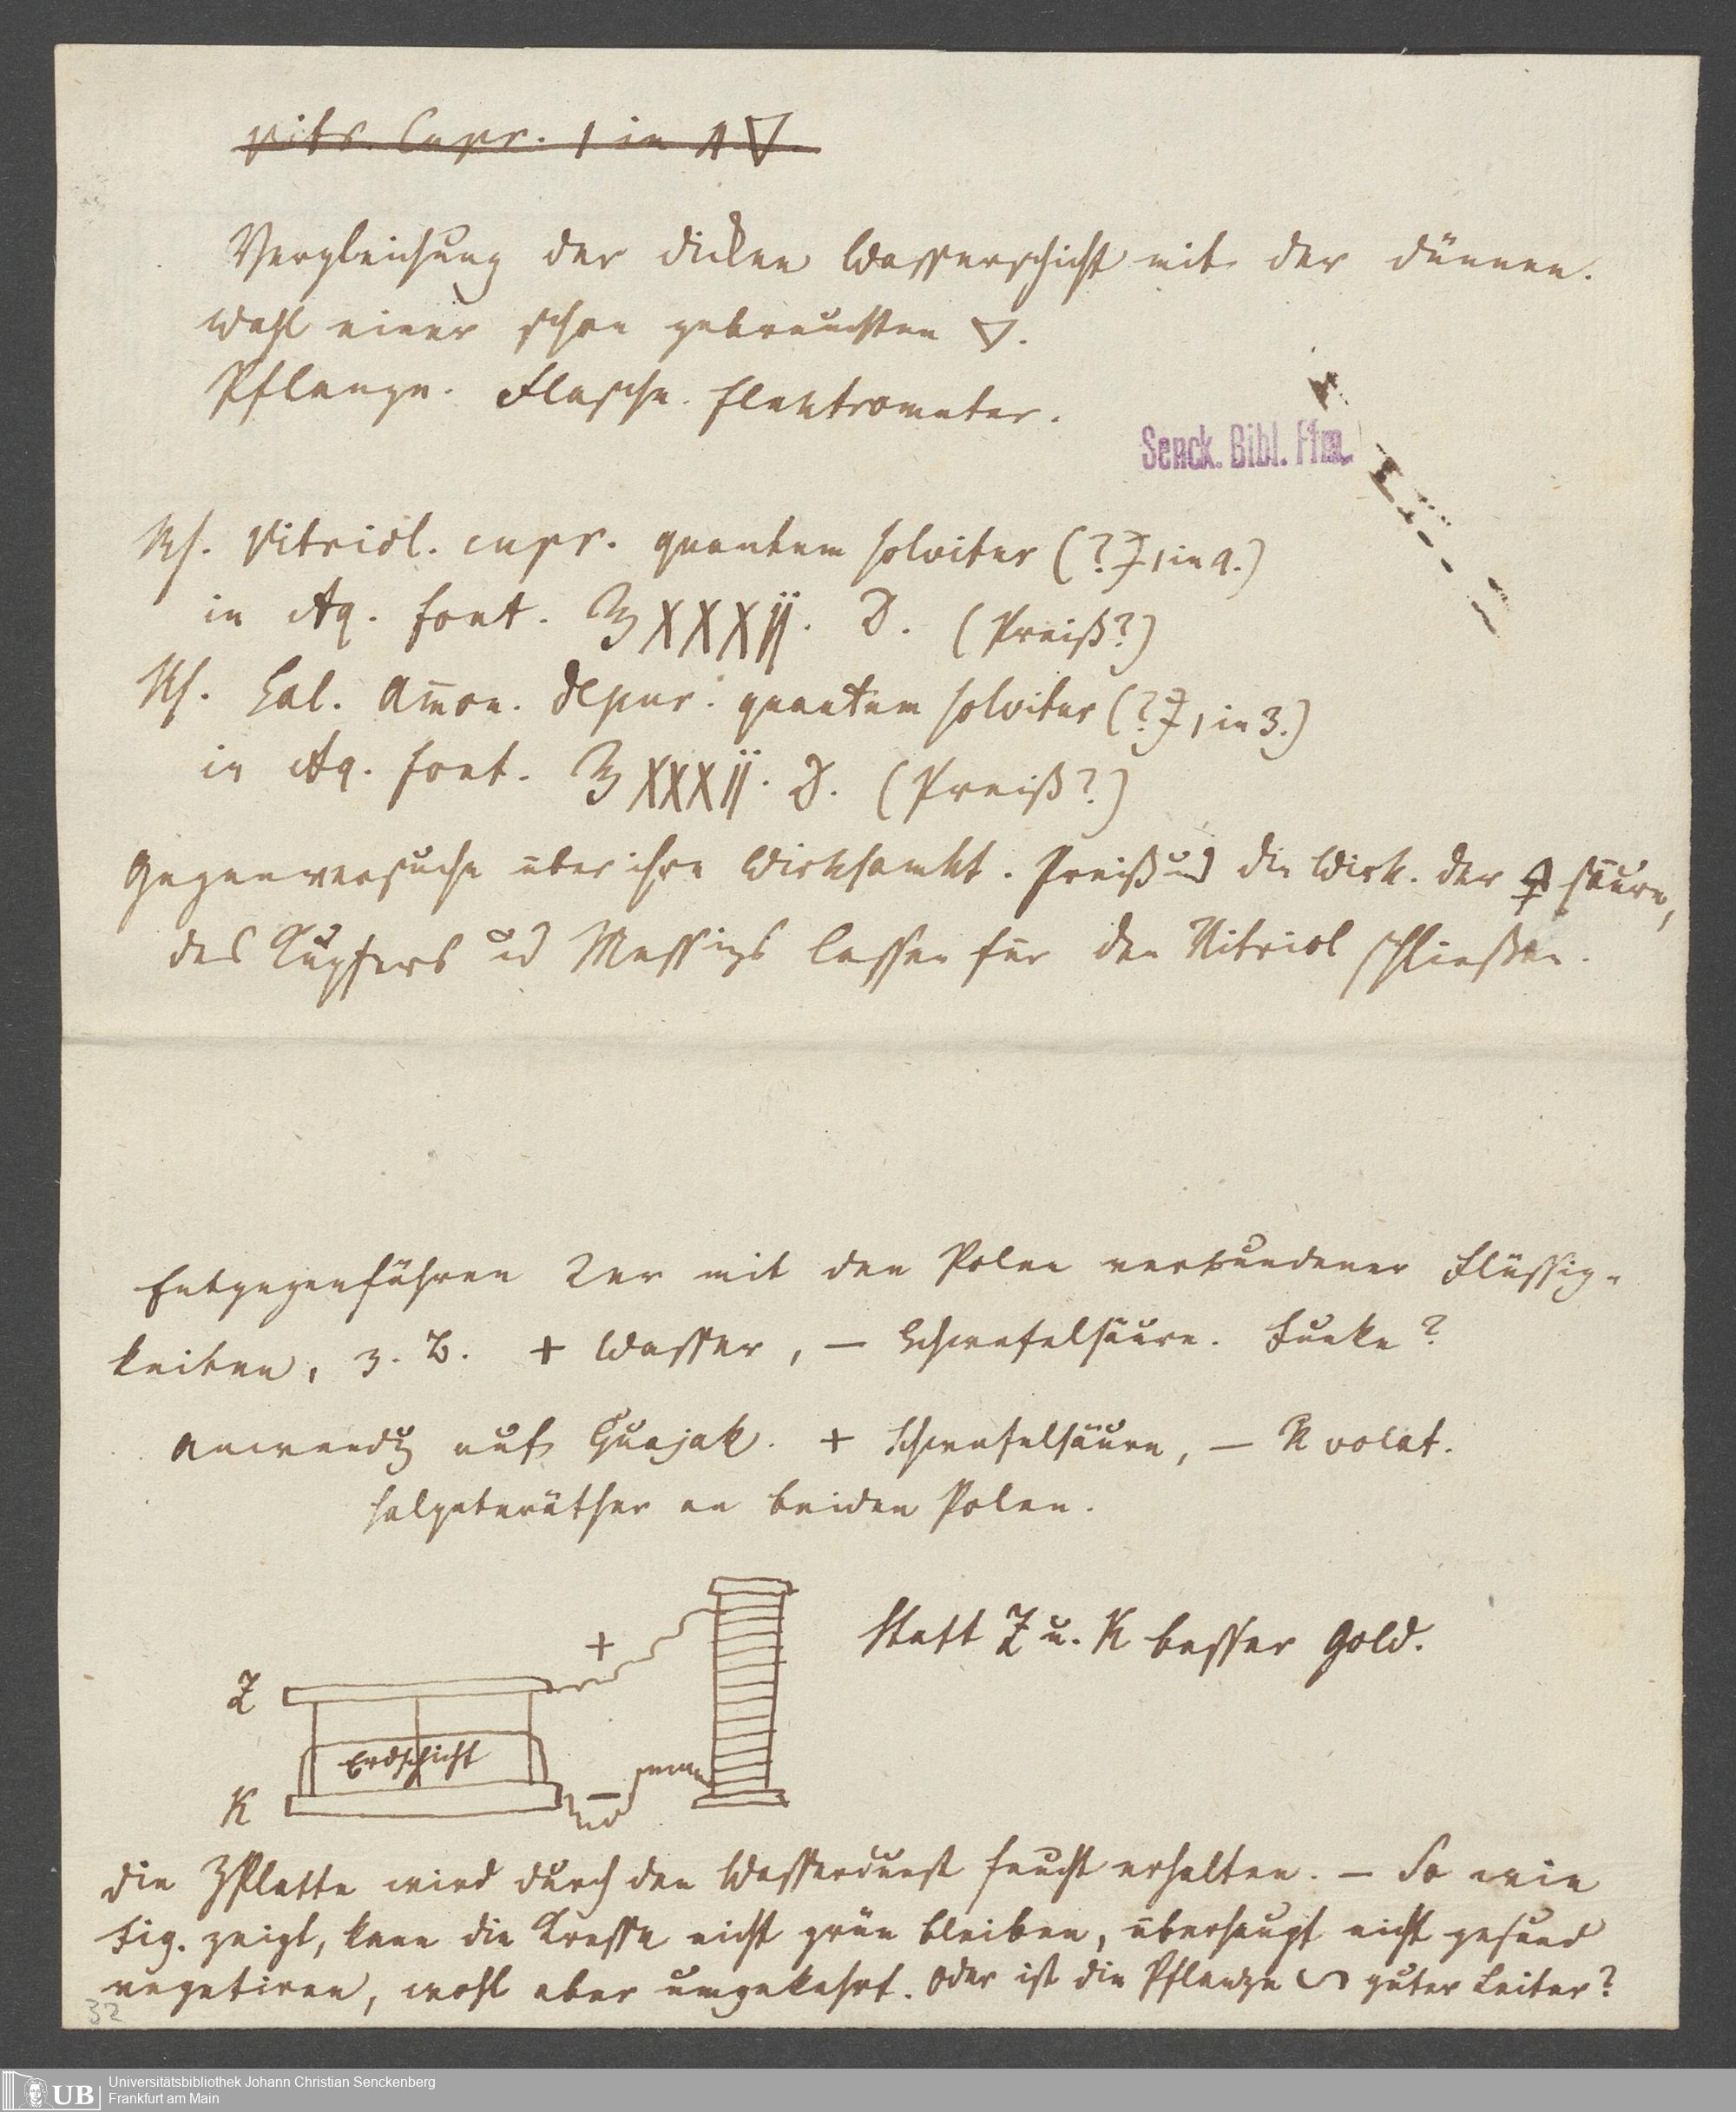 Vitr. Cupr. 1 in 4 🜄.
Vergleichung der dicken Wasserschicht mit der dünnen.
Wahl einer schon gebrauchten 🜄.
Pflanze. Flasche. Elektrometer.
Senck. Bibl. Ffm.
Rf. Vitriol. cupr. quantum solvitur (? 1 in 4.)
in Aq. font. ℥ XXXij. D. (Preiß?)
Rf. Sal. Am̄on. depur. quantum solvitur (? 1 in 3.)
in Aq. font. ℥ XXXij. D. (Preiß?)
Gegenversuche über ihre Wirksamkt. Preiß und die Wirk. der säure,
des Kupfers ud Messings lassen für den Vitriol schließen.
Entgegenführen 2er mit den Polen verbundener Flüssig-
keiten, z. B. + Wasser, – Schwefelsäure. Funke?
Anwendg auf Guajak. + Schwefelsäure, – K volat.
Salpeteräther an beiden Polen.
+
Statt Z u. K besser Gold.
Z
Erdschicht
K
–
Die ZPlatte wird durch den Wasserdunst feucht erhalten. – So wie
Fig. zeigt, kann die Kresse nicht grün bleiben, überhaupt nicht gesund
vegetiren, wohl aber umgekehrt. Oder ist die Pflanze guter Leiter?
32
UB
Universitätsbibliothek Johann Christian Senckenberg
Frankfurt am Main